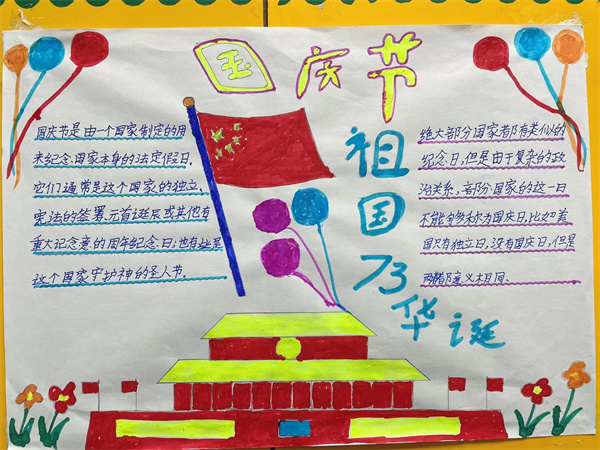 国庆节
祖国73华诞
国庆节是由一个国家制定的用
来纪念国家本身的法定假日.
它们通常是这个国家的独立.
宪法的签署.元首诞辰或其他有
重大记念意的周年纪念日;也有些是
这个国家守护神的圣人节.
绝大部分国家都有类似的
纪念日,但是由于复杂的政
治关系,部分国家的这一日
不能够称为国庆日,比如美
国只有独立日,没有国庆日,但是
两者意义相同.